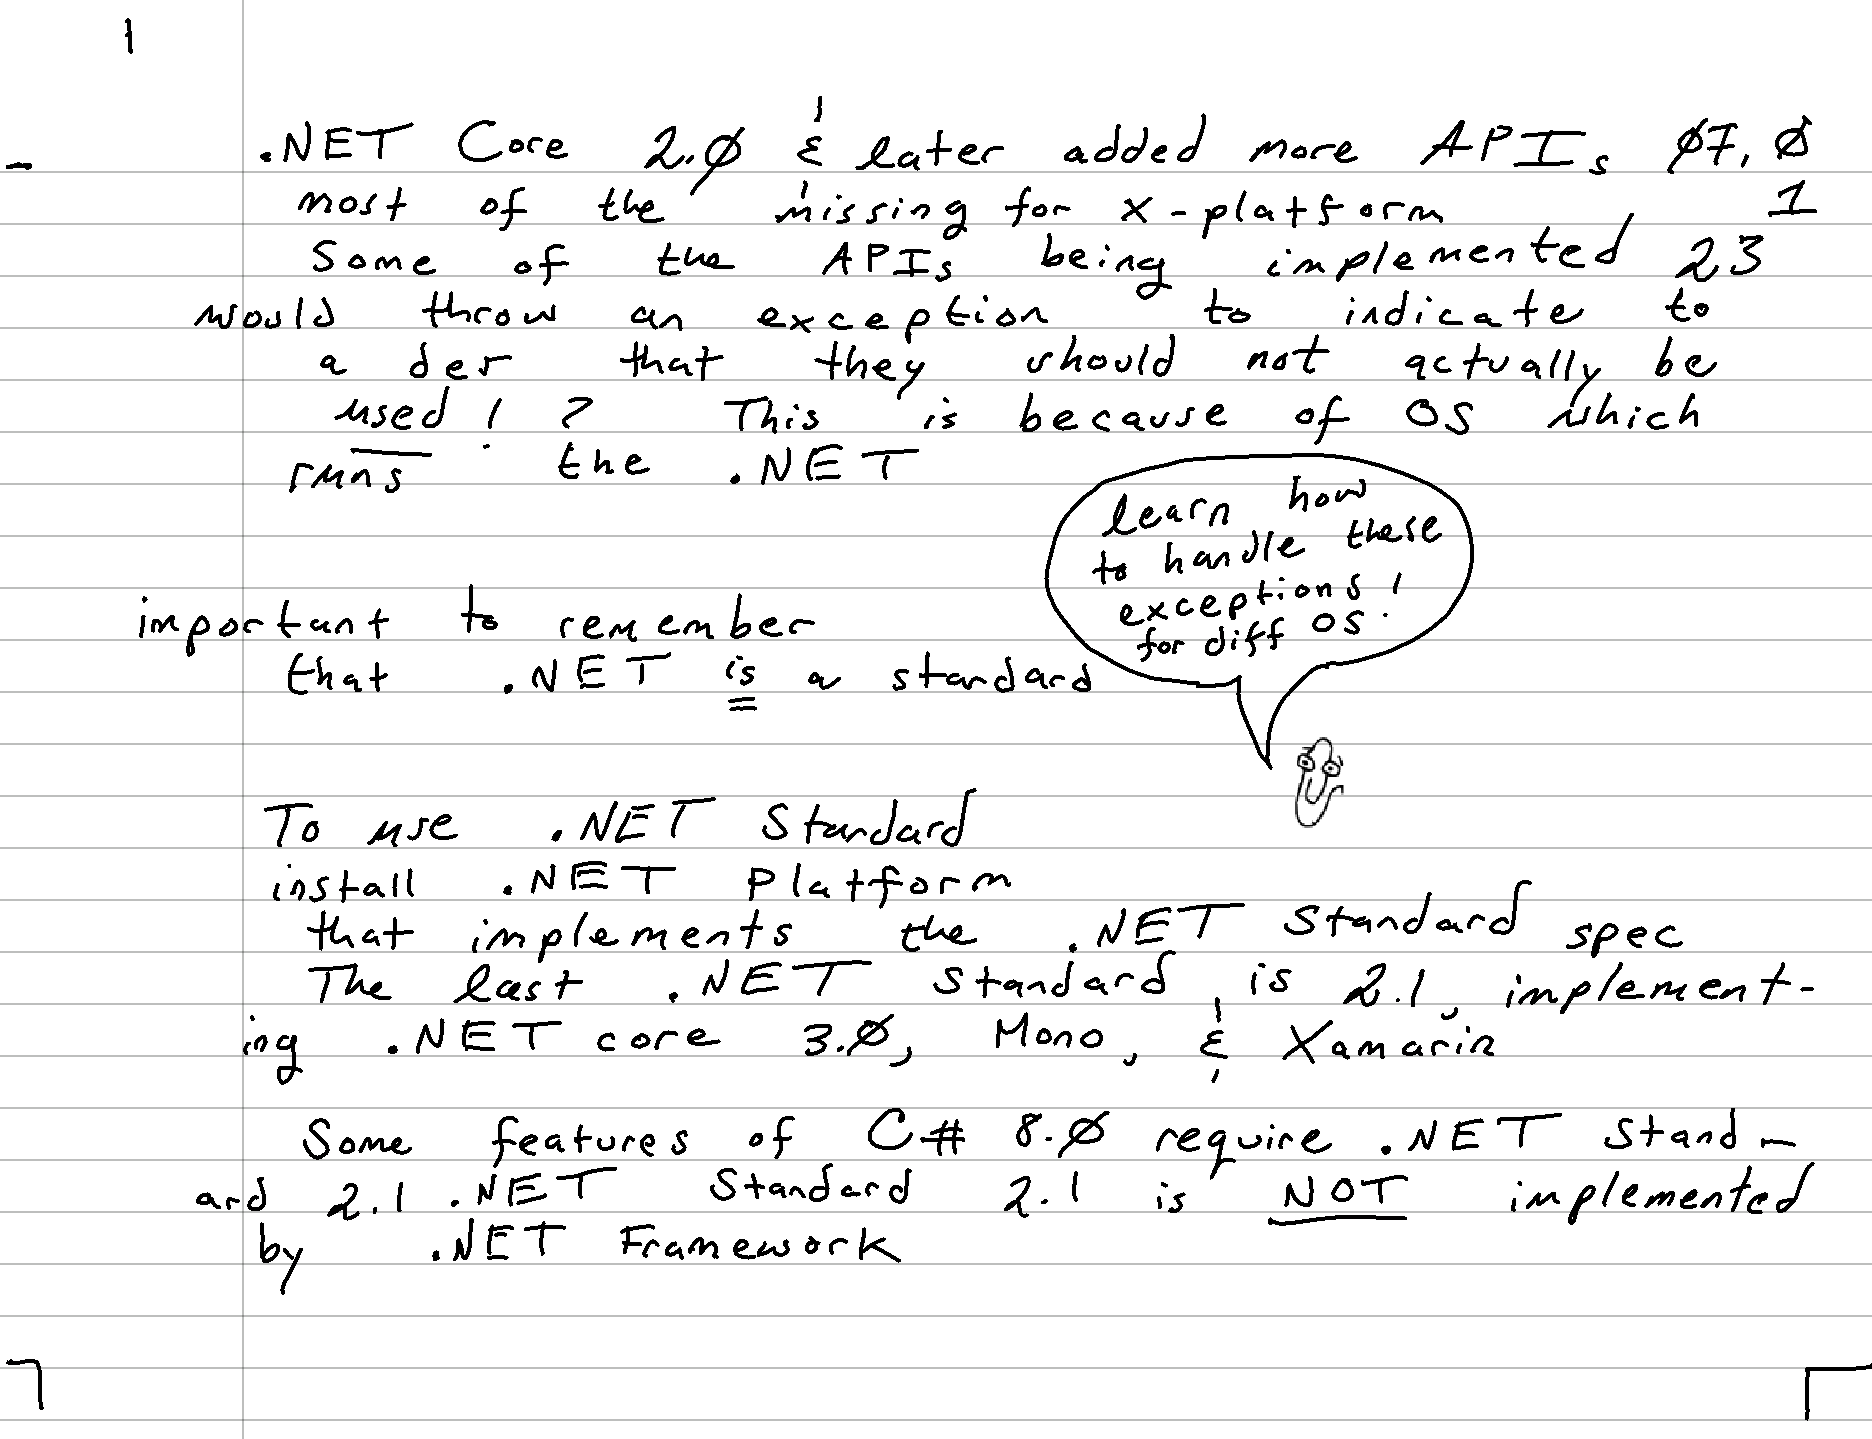 1
.NET Core 2.0 & later added more APIs 07, 0
most of the missing for x-platform 1
Some of the APIs being implemented 23
would throw an exception to indicate to
a der that they should not actually be
used! ? This is because of OS which
runs the .NET
learn how
to handle these
exceptions!
for diff OS.
important to remember
that .NET is a standard
To use .NET Standard
install .NET Platform
that implements the .NET Standard spec
The last .NET Standard is 2.1, implement-
ing .NET core 3.0, Mono, & Xamarin
Some features of C# 8.0 require .NET Stand-
ard 2.1 .NET Standard 2.1 is NOT implemented
by .NET Framework